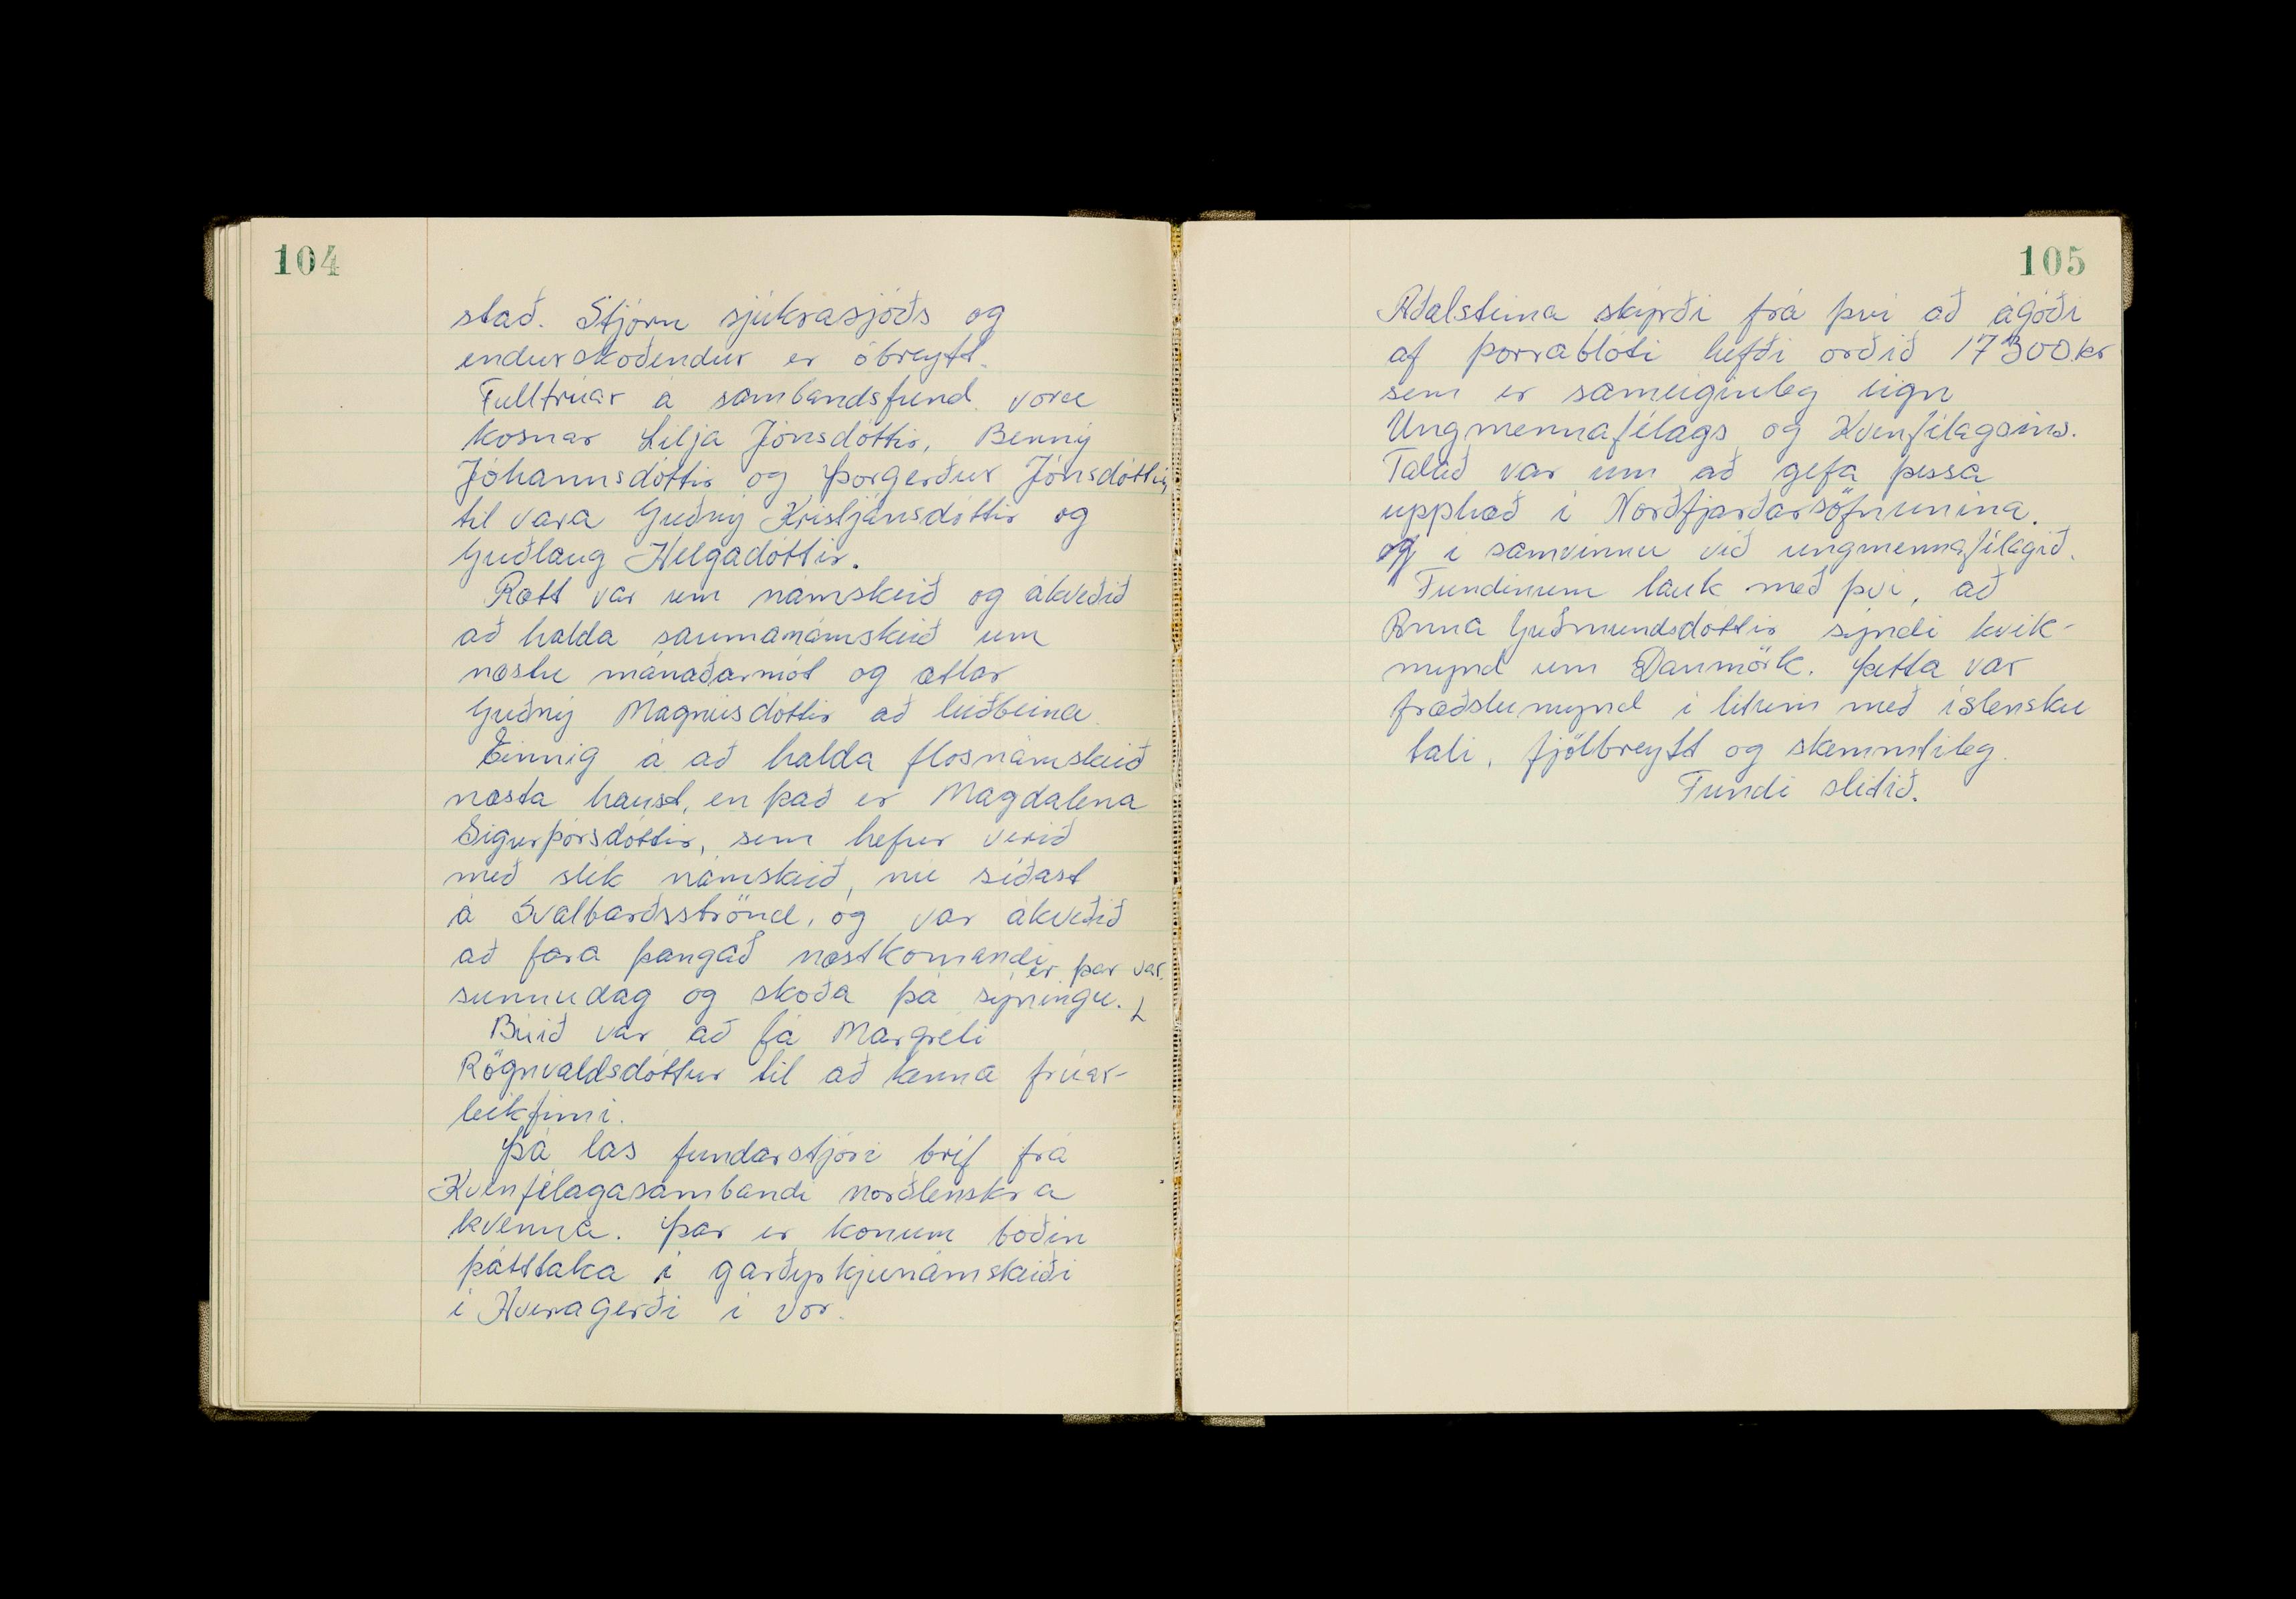 104
stað. Stjórn sjúkrasjóðs og
endurskoðendur er óbreytt.
Fulltrúar á sambandsfund voru
kosnar Lilja Jónsdóttir, Benný
Jóhannsdóttir og Þorgerður Jónsdóttir,
til vara Guðný Kristjánsdóttir og
Guðlaug Helgadóttir.
Rætt var um námskeið og ákveðið
að halda saumanámskeið um
næstu mánaðarmót og ætlar
Guðný Magnúsdóttir að leiðbeina.
Einnig á að halda flosnámskeið
næsta haust, en það er Magdalena
Sigurþórsdóttir, sem hefur verið
með slík námskeið, nú síðast
á Svalbarðsströnd, og var ákveðið
að fara þangað næstkomandi
er þar var.
sunnudag og skoða þá sýningu.
Búið var að fá Margréti
Rögnvaldsdóttur til að kenna frúar-
leikfimi.
Þá las fundarstjóri bréf frá
Kvenfélagasambandi norðlenskra
kvenna. Þar er konum boðin
þátttaka í garðyrkjunámskeiði
í Hveragerði í vor.
105
Aðalsteina skýrði frá því að ágóði
af þorrablóti hefði orðið 17300.kr
sem er sameiginleg eign
Ungmennafélags og Kvenfélagsins.
Talað var um að gefa þessa
upphæð í Norðfjarðarsöfnunina.
og í samvinnu við ungmennafélagið.
Fundinum lauk með því, að
Anna Guðmundsdóttir sýndi kvik-
mynd um Danmörk. Þetta var
fræðslumynd í litum með íslensku
tali, fjölbreytt og skemmtileg.
Fundi slitið.